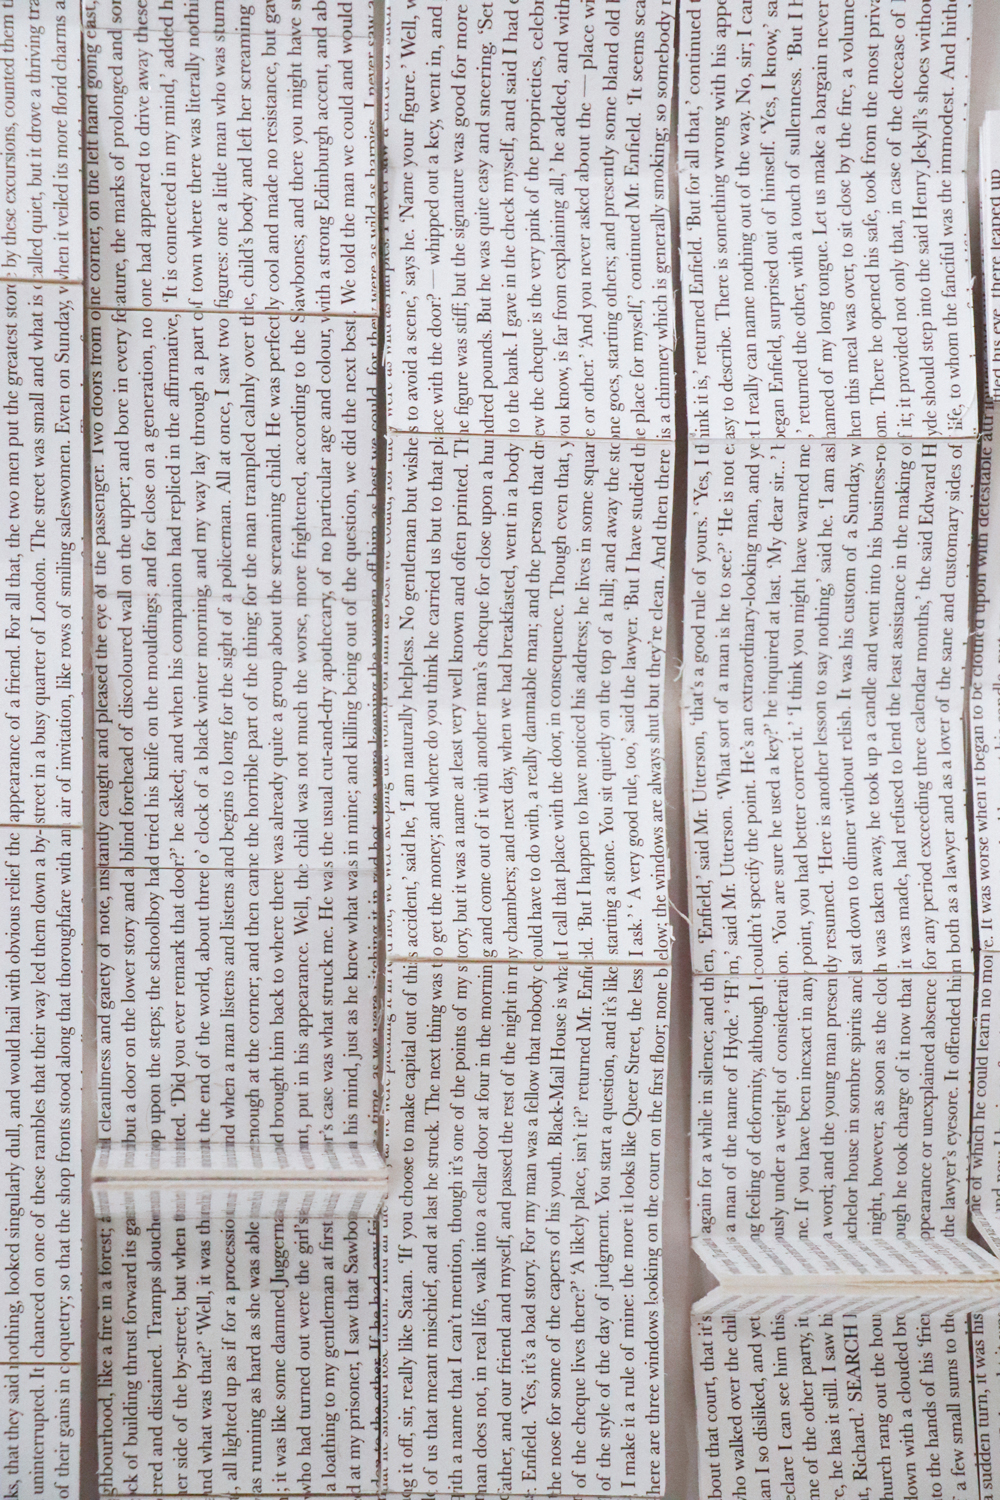 ks, that they said nothing, looked singularly dull, and would hail with obvious relief the appearance of a friend. For all that, the two men put the greatest store by these excursions, counted them
uninterrupted. It chanced on one of these rambles that their way led them down a by-street in a busy quarter of London. The street was small and what is called quiet, but it drove a thriving
of their gains in coquetry; so that the shop fronts stood along that thoroughfare with an air of invitation, like rows of smiling saleswomen. Even on Sunday, when it veiled its more florid charms
ghbourhood, like a fire in a forest; cleanliness and gaiety of note, instantly caught and pleased the eye of the passenger. Two doors from one corner, on the left hand going east,
ck of building thrust forward its ga but a door on the lower story and a blind forehead of discoloured wall on the upper; and bore in every feature, the marks of prolonged and
ered and distained. Tramps slouche op upon the steps; the schoolboy had tried his knife on the mouldings; and for close on a generation, no one had appeared to drive away these
er side of the by-street; but when nted. 'Did you ever remark that door?' he asked; and when his companion had replied in the affirmative, 'It is connected in my mind,' added
and what was that?' 'Well, it was th at the end of the world, about three o' clock of a black winter morning, and my way lay through a part of town where there was literally
, all lighted up as if for a processio nd when a man listens and listens and begins to long for the sight of a policeman. All at once, I saw two figures: one a little man who was
as running as hard as she was able enough at the corner; and then came the horrible part of the thing; for the man trampled calmly over the child's body and left her screaming
; it was like some damned Juggerna nd brought him back to where there was already quite a group about the screaming child. He was perfectly cool and made no resistance, but
who had turned out were the girl's nt, put in his appearance. Well, the child was not much the worse, more frightened, according to the Sawbones; and there you might have
a loathing to my gentleman at first or's case was what struck me. He was the usual cut-and-dry apothecary, of no particular age and colour, with a strong Edinburgh accent, and
d at my prisoner, I saw that Sawbo his mind, just as he knew what was in mine; and killing being out of the question, we did the next best. We told the man we could and would
g it off, sir, really like Satan. 'If you choose to make capital out of this accident,' said he, 'I am naturally helpless. No gentleman but wishes to avoid a scene,' says he. 'Name your figure.' Well,
of us that meant mischief, and at last he struck. The next thing was to get the money; and where do you think he carried us but to that place with the door? — whipped out a key, went in, and
ith a name that I can't mention, though it's one of the points of my story, but it was a name at least very well known and often printed. The figure was stiff; but the signature was good for more
man does not, in real life, walk into a cellar door at four in the morning and come out of it with another man's cheque for close upon a hundred pounds. But he was quite easy and sneering. 'Set
ather, and our friend and myself, and passed the rest of the night in my chambers; and next day, when we had breakfasted, went in a body to the bank. I gave in the check myself, and said I had
Enfield. 'Yes, it's a bad story. For my man was a fellow that nobody could have to do with, a really damnable man; and the person that drew the cheque is the very pink of the proprieties,
the nose for some of the capers of his youth. Black-Mail House is what I call that place with the door, in consequence. Though even that, you know, is far from explaining all,' he added, and with
of the cheque lives there?' 'A likely place, isn't it?' returned Mr. Enfield. 'But I happen to have noticed his address; he lives in some square or other.' 'And you never asked about the — place
of the style of the day of judgment. You start a question, and it's like starting a stone. You sit quietly on the top of a hill; and away the stone goes, starting others; and presently some bland old
I make it a rule of mine: the more it looks like Queer Street, the less I ask.' 'A very good rule, too,' said the lawyer. 'But I have studied the place for myself,' continued Mr. Enfield. 'It seems
here are three windows looking on the court on the first floor; none below; the windows are always shut but they're clean. And then there is a chimney which is generally smoking; so somebody
bout that court, that it's again for a while in silence; and then, 'Enfield,' said Mr. Utterson, 'that's a good rule of yours.' 'Yes, I think it is,' returned Enfield. 'But for all that,' continued
who walked over the chil a man of the name of Hyde.' 'H'm,' said Mr. Utterson. 'What sort of a man is he to see?' 'He is not easy to describe. There is something wrong with his
an I so disliked, and yet ng feeling of deformity, although I couldn't specify the point. He's an extraordinary-looking man, and yet I really can name nothing out of the way. No, sir; I can
eclare I can see him this ously under a weight of consideration. 'You are sure he used a key?' he inquired at last. 'My dear sir...' began Enfield, surprised out of himself. 'Yes, I know,'
me of the other party, it ne. If you have been inexact in any point, you had better correct it.' 'I think you might have warned me,' returned the other, with a touch of sullenness. 'But I
, he has it still. I saw hi a word; and the young man presently resumed. 'Here is another lesson to say nothing,' said he. 'I am ashamed of my long tongue. Let us make a bargain never
t, Richard.' SEARCH chelor house in sombre spirits and sat down to dinner without relish. It was his custom of a Sunday, when this meal was over, to sit close by the fire, a volume
hurch rang out the hou night, however, as soon as the cloth was taken away, he took up a candle and went into his business-room. There he opened his safe, took from the most
down with a clouded bro ough he took charge of it now that it was made, had refused to lend the least assistance in the making of it; it provided not only that, in case of the decease of
to the hands of his 'frie ppearance or unexplained absence for any period exceeding three calendar months,' the said Edward Hyde should step into the said Henry Jekyll's shoes
a few small sums to the the lawyer's eyesore. It offended him both as a lawyer and as a lover of the sane and customary sides of life, to whom the fanciful was the immodest. And
sudden turn, it was his of which he could learn no more. It was worse when it began to be clothed upon with detestable